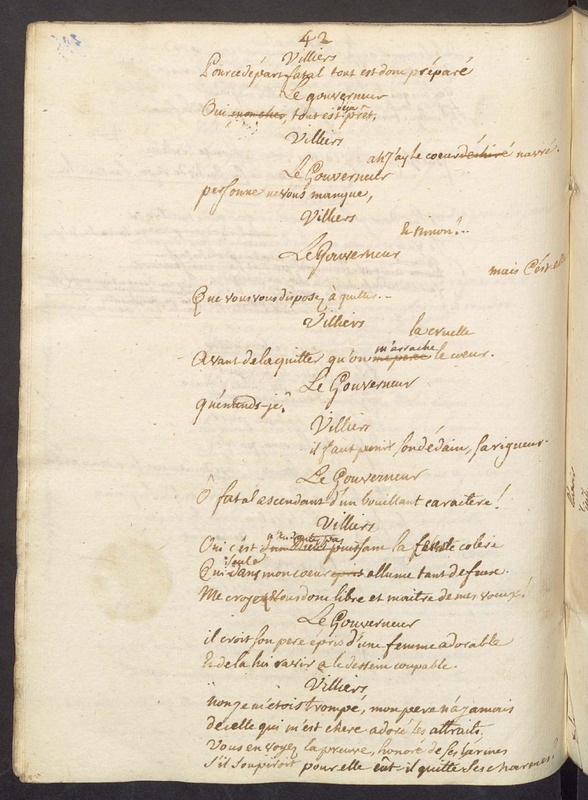 42
Villiers
Pour ce départ fatal tout est donc préparé
Le gouverneur
Oui mon cher, tout est déja prêt,
Villiers
ah j'ay le coeur déchiré navré.
Le Gouverneur
personne ne vous manque,
Villiers
et Ninon?..
Le Gouverneur
mais C'est elle
Que vous vous disposez à quitter..
Villiers
la cruelle
Avant de la quitter qu'on me perce m'arrache le coeur.
Le Gouverneur
qu'entends-je?
Villiers
il faut punir son dédain, sa rigueur-
Le Gouverneur
Ô fatal ascendant d'un bouillant caractere!
Villiers
Oui c'est n'en doutez pas la colere
Qui seule dans mon coeur allume tant de feux.
Me croyez Vous donc libre et maitre de mes voeux?
Le Gouverneur
il croit son pere épris d'une femme adorable
Et de la lui ravir a le dessein coupable.
Villiers
non je m'étois trompé, mon pere n'a jamais
de celle qui m'est chere adoré les attraits.
Vous en voyez la preuve, honoré de ses larmes
S'il soupiroit pour elle eût-il quitté ses charmes?